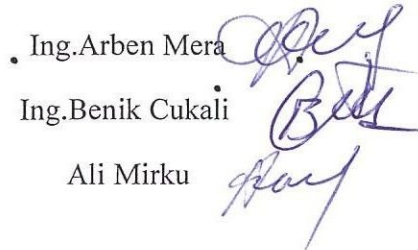 Ing.Arben Mera
Ing.Benik Cukali
Ali Mirku